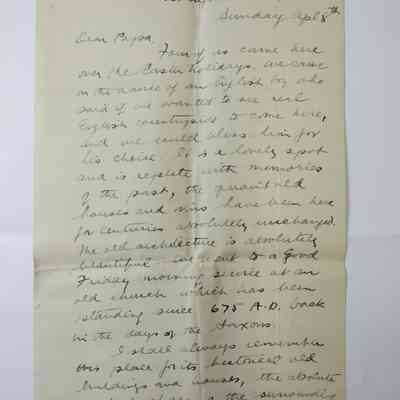 Sunday Apl 8th
Dear Papa,
Four of us came here
over the Easter holidays. We came
on the advice of an English boy who
said if we wanted to see real
English countryside to come here,
and we could bless him for
his choice. It is a lovely spot
and is replete with memories
of the past, the quaint old
houses and inns have been here
for centuries absolutely unchanged.
The old architecture is absolutely
beautiful. We went to a Good
Friday morning service at an
old church which has been
standing since 675 A.D. back
in the days of the Saxons.
I shall always remember
this place for its historical old
buildings and houses, the absolute
of the surrounding